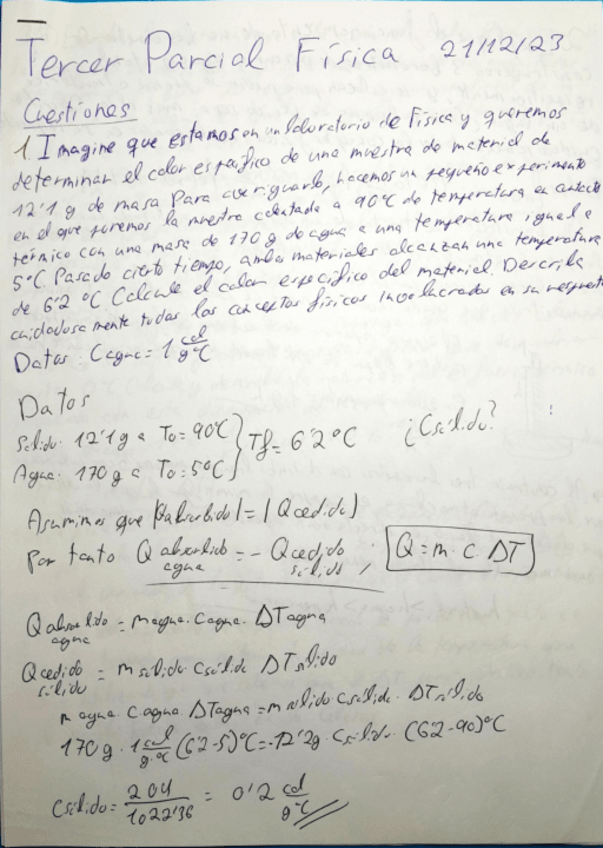 Tercer Parcial Física 21/12/23
Cuestiones
1. Imagine que estamos en un laboratorio de Física y queremos
determinar el calor específico de una muestra de material de
12'1 g de masa Para averiguarlo, hacemos un pequeño experimento
en el que ponemos la muestra calentada a 90°C de temperatura en contacto
térmico con una masa de 170 g de agua a una temperatura igual a
5°C Pasado cierto tiempo, ambos materiales alcanzan una temperatura
de 6'2 °C Calcule el calor específico del material. Describa
cuidadosamente todos los conceptos físicos involucrados en su respuesta
Datos: Cagua = 1 cal/g°C
Datos
Sólido: 12'1 g a To = 90°C } Tf = 6'2°C ¿Csólido?
Agua: 170 g a To = 5°C
Asumimos que |Qabsorbido| = |Qcedido|
Por tanto Q absorbido agua = - Qcedido sólido ; Q = m · c · ΔT
Qabsorbido agua = magua · Cagua · ΔTagua
Qcedido sólido = msólido Csólido ΔTsólido
magua · Cagua ΔTagua = msólido Csólido · ΔTsólido
170 g · 1 cal/g·°C (6'2-5)°C = -12'2g · Csólido · (6'2-90)°C
Csólido = 204/1022'36 = 0'2 cal/g°C